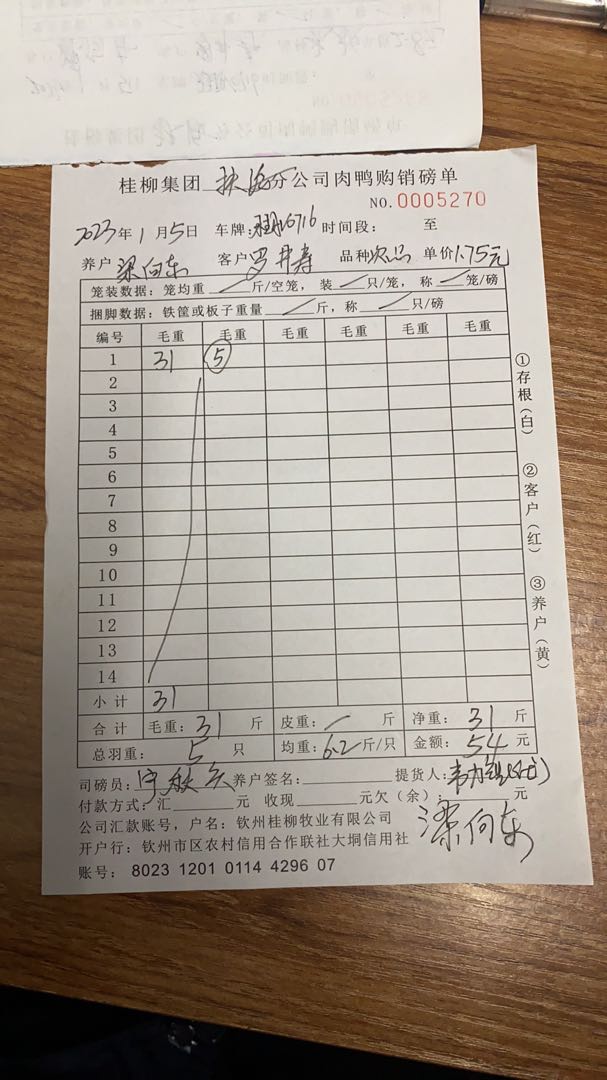 桂柳集团 分公司肉鸭购销磅单
NO.0005270
2023年1月5日 车牌: 6716 时间段: 至
养户 梁向东 客户 罗井寿 品种 次品 单价1.75元
笼装数据: 笼均重 / 斤/空笼, 装 / 只/笼, 称 / 笼/磅
捆脚数据: 铁筐或板子重量 / 斤, 称 / 只/磅
编号 毛重 毛重 毛重 毛重 毛重 毛重
1 31 5
2
3
4
5
6
7
8
9
10
11
12
13
14
小计 31
合计 毛重: 31 斤 皮重: / 斤 净重: 31 斤
总羽重: 5 只 均重: 6.2 斤/只 金额: 54 元
司磅员: 养户签名: 提货人:
付款方式: 汇 元 收现 元欠(余): 元
梁向东
公司汇款账号, 户名: 钦州桂柳牧业有限公司
开户行: 钦州市区农村信用合作联社大垌信用社
账号: 8023 1201 0114 4296 07
①存根(白)
②客户(红)
③养户(黄)